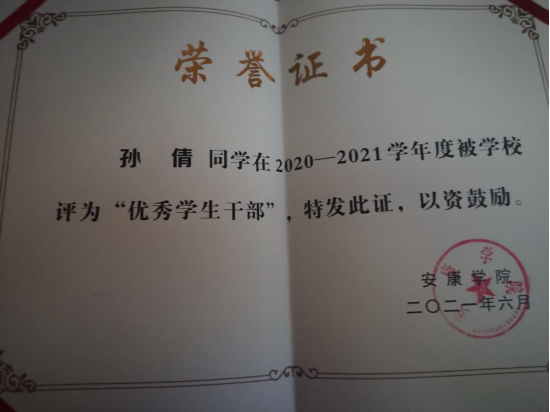 荣誉证书
孙倩 同学在2020—2021学年度被学校
评为“优秀学生干部”，特发此证，以资鼓励。
安康学院
二〇二一年六月